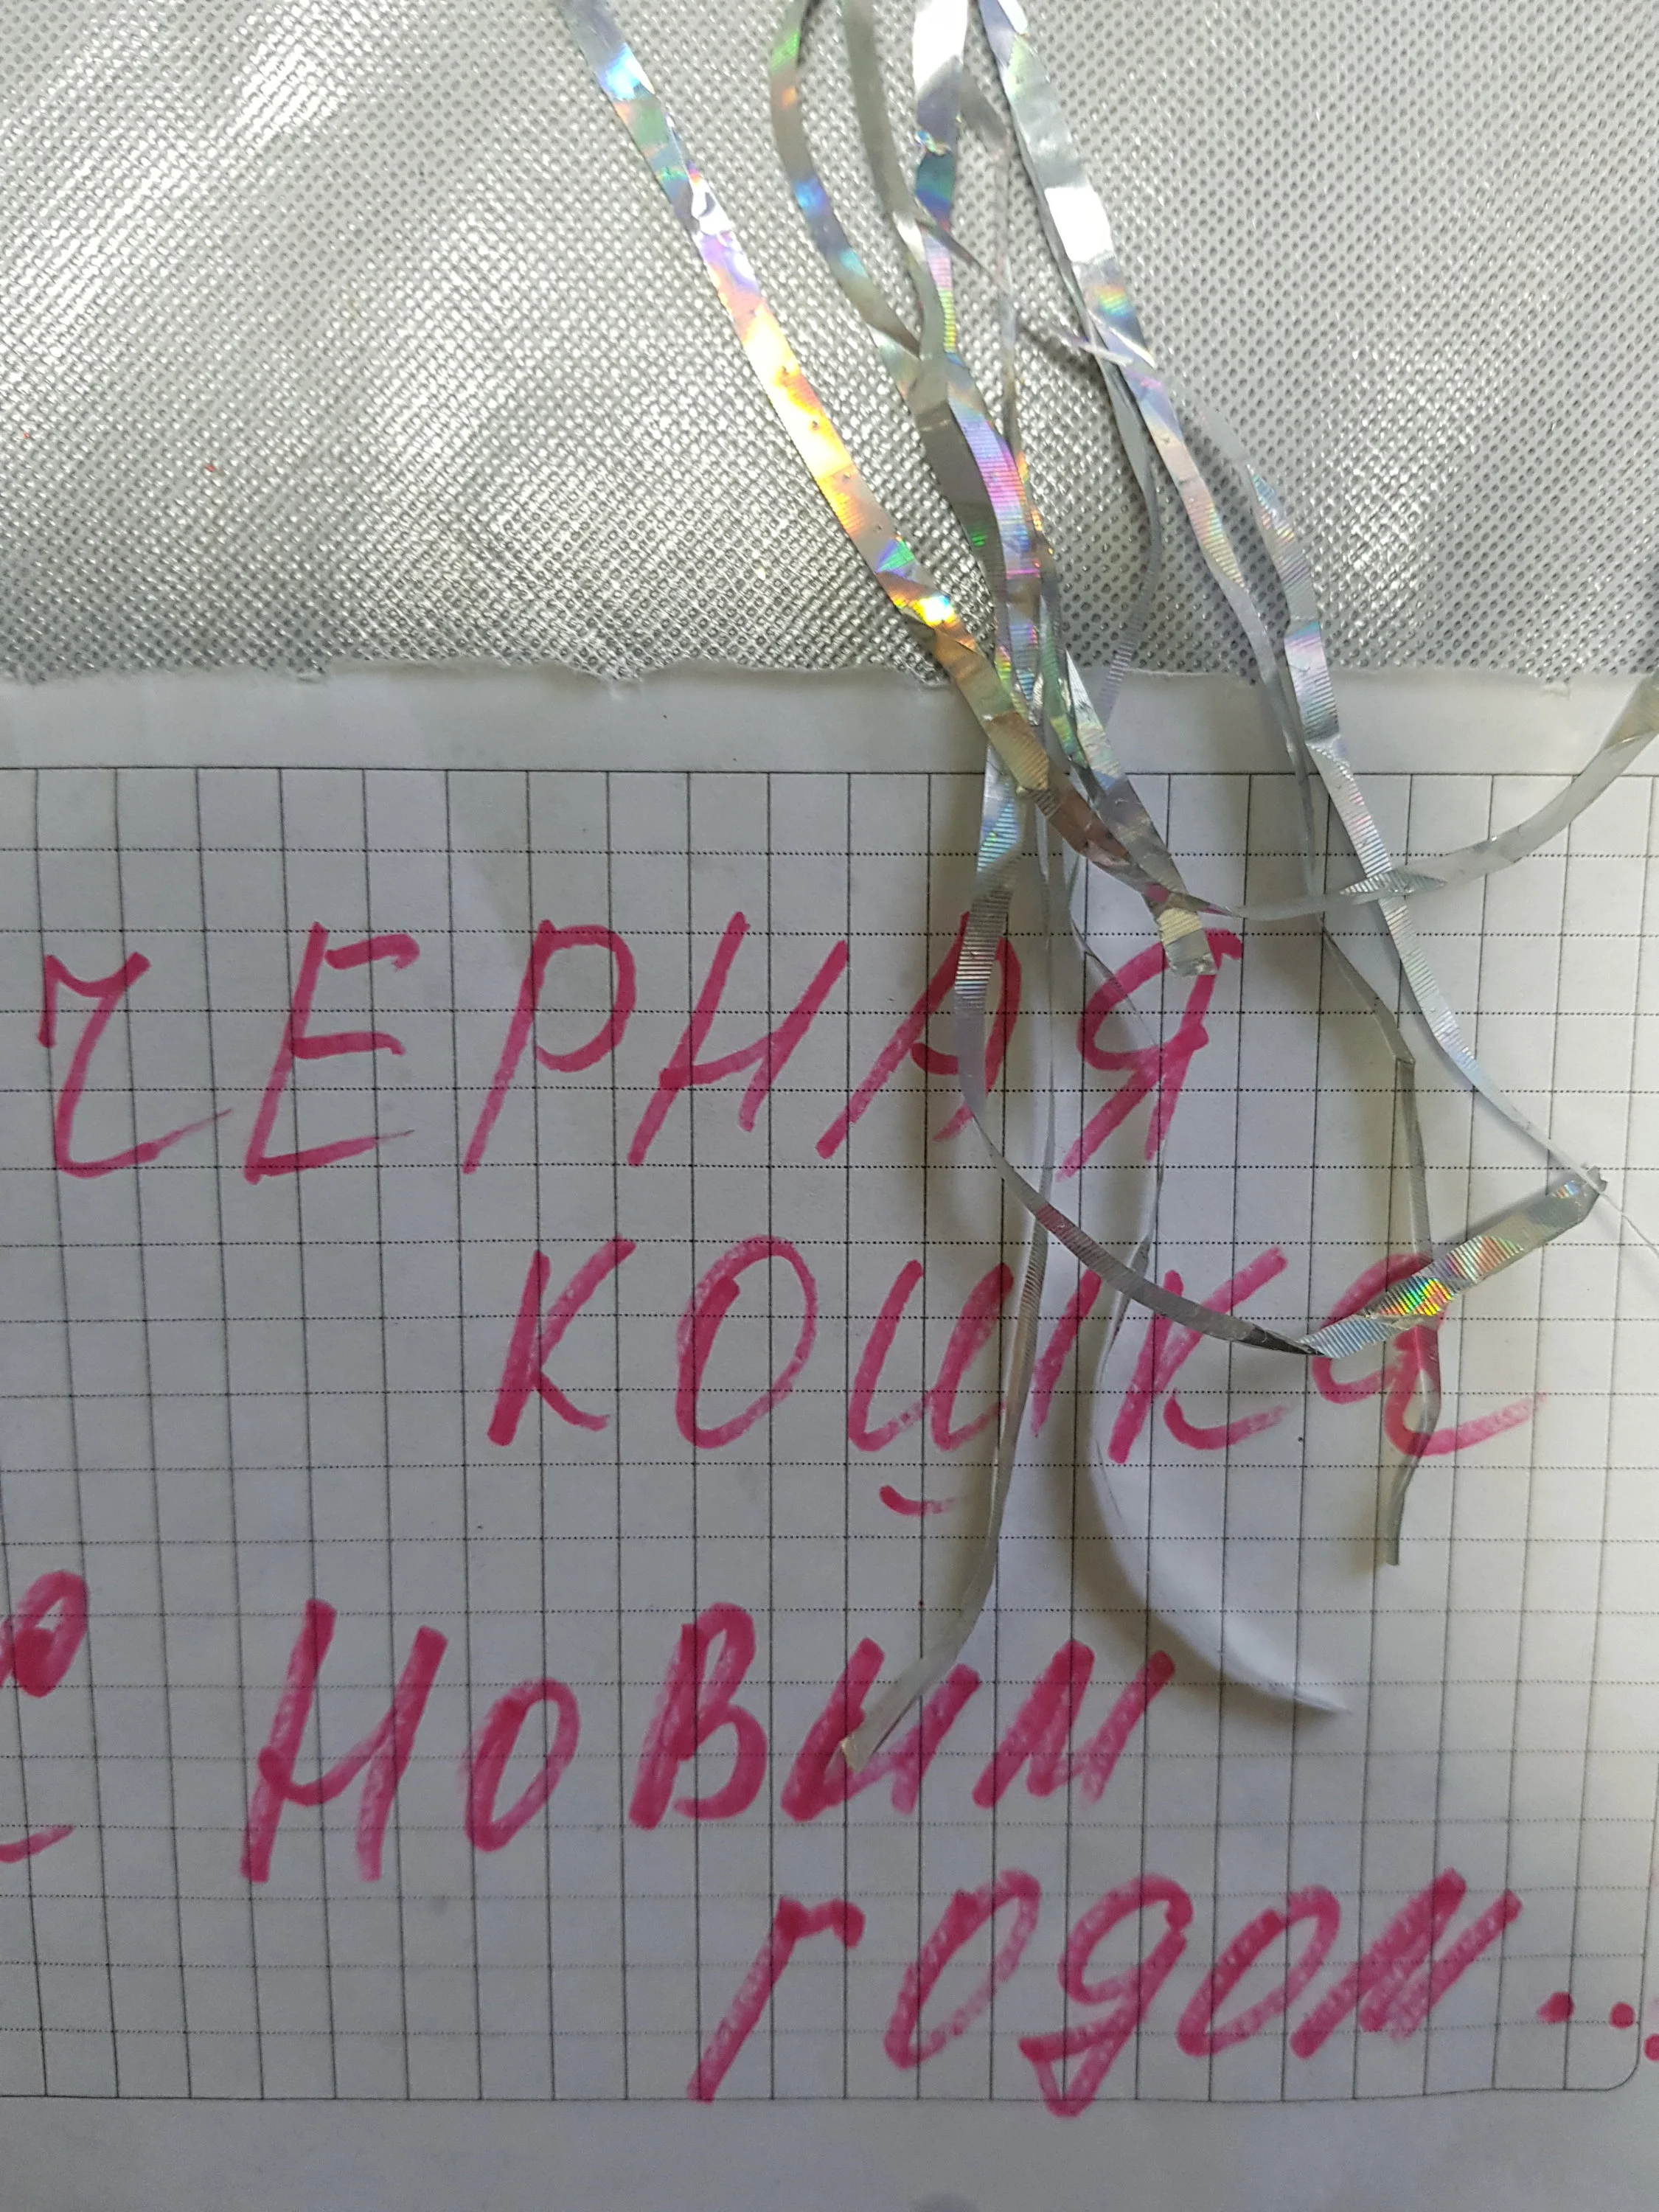 ЧЕРНАЯ
КОШКА
С НОВЫМ
ГОДОМ...